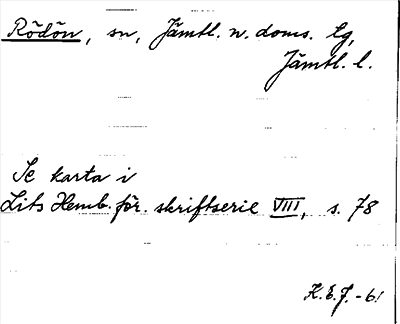 Rödön, sn, Jämtl. n. doms. tg,
Jämtl. l.
Se karta i
Lits Hemb. för. skriftserie VIII, s. 78
K. E. J. -61